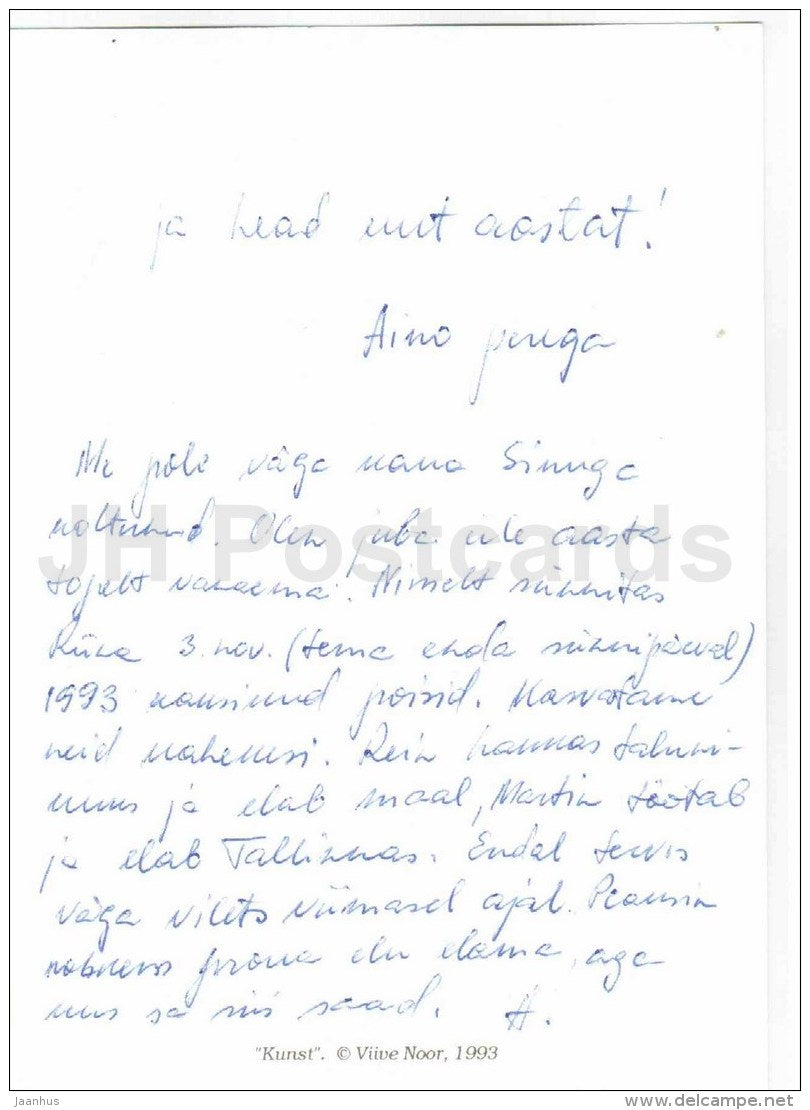 ja head uut aastat!
Aino perega
Me pole väga kaua Sinuga
kohtunud. Olen juba üle aasta
topelt vanaema! Nimelt sünnitas
3. nov. (tema enda sünnipäeval)
1993 kaksikud poisid. Kasvatame
neid kahekesi. Rein hakkas taluni-
kuks ja elab maal, Martin töötab
ja elab Tallinnas. Endal tervis
väga vilets viimasel ajal. Peaksin
elu elama, aga
kus sa siis saad. A.
"Kunst". © Viive Noor, 1993
JH Postcards
Jaanhus
www.delcampe.net